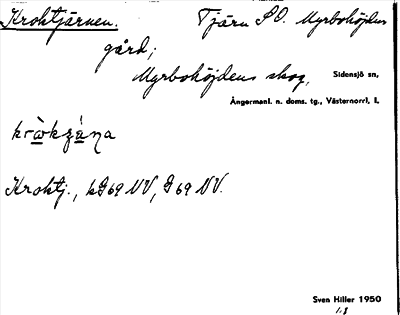 Kroktjärnen. Tjärn S.O. Myrbohöjdens
gård;
Myrbohöjdens skog, Sidensjö sn,
Ångermanl. n. doms. tg., Västernorrl, l,
Kroktj., kG 69 NV, G 69 NV.
Sven Hiller 1950